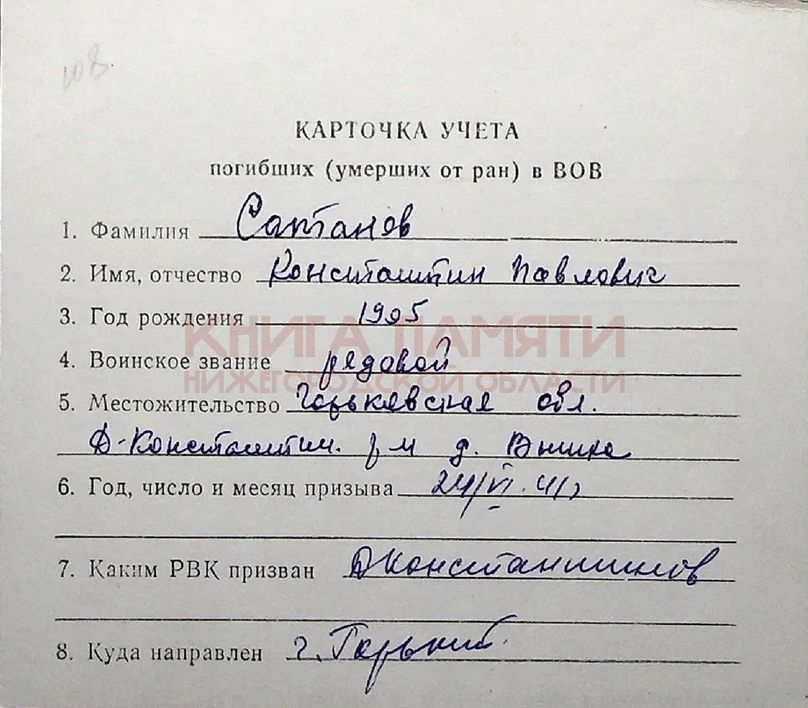 108.
КАРТОЧКА УЧЕТА
погибших (умерших от ран) в ВОВ
1. Фамилия Саптанов
2. Имя, отчество Константин Павлович
3. Год рождения 1905
КНИГА ПАМЯТИ
4. Воинское звание рядовой
НИЖЕГОРОДСКОЙ ОБЛАСТИ
5. Местожительство Горьковская обл.
Д-Константин. д.
6. Год, число и месяц призыва 24/VI.41
7. Каким РВК призван ДКонстантинов
8. Куда направлен г. Горький.